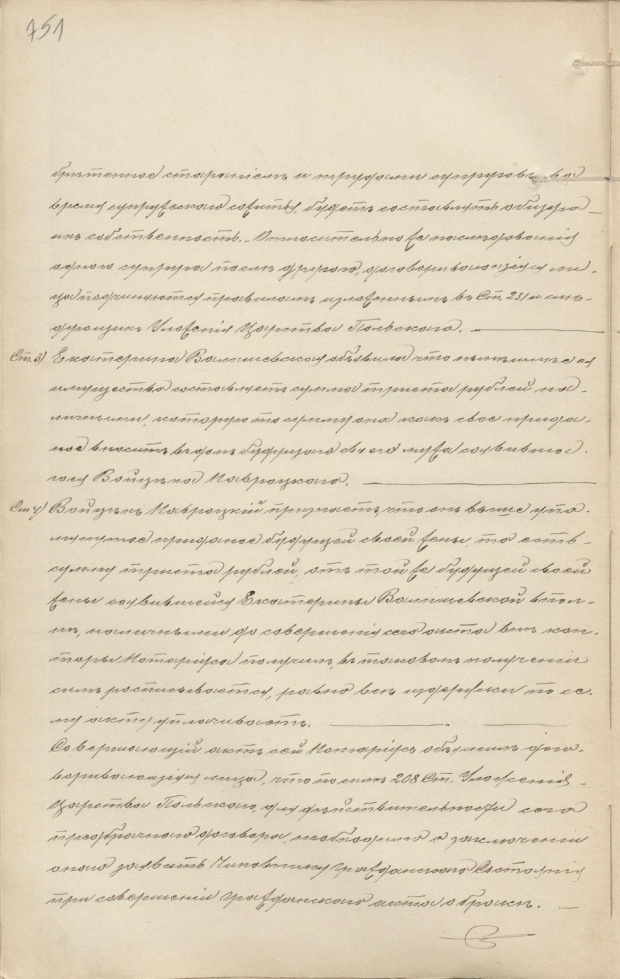 751
брѣтенное стараніемъ и трудами супруговъ во
время супружескаго сожитія, будетъ составлять общую
ихъ собственность. Относительно же наслѣдованія
одного супруга послѣ другого, договаривающіяся ли-
ца подчиняются правиламъ изложеннымъ въ Ст. 231 и слѣ-
дующихъ Уложенія Царства Польскаго.
Ст. 3) Екатерина Валишевская объявила что нынѣшнее ея
имущество составляетъ сумма триста рублей на-
личными, которую то сумму она какъ свое прида-
ное вноситъ въ домъ будущаго своего мужа созвавше-
гося Войцѣха Навроцкаго.
Ст. 4) Войцѣхъ Навроцкій признаетъ что онъ выше упо-
мянутое приданое будущей своей жены, то есть
сумму триста рублей, отъ той же будущей своей
жены явившейся Екатерины Валишевской впол-
нѣ, наличными до совершенія сего акта внѣ кон-
торы Нотаріуса получилъ, въ таковомъ полученіи
симъ росписывается, равно всѣ издержки по се-
му акту уплачиваетъ.
Совершающій актъ сей Нотаріусъ объявилъ дого-
варивающимся лицамъ, что по силѣ 208 Ст. Уложенія
Царства Польскаго, для дѣйствительности сего
предбрачнаго договора, необходимо о заключеніи
онаго заявить Чиновнику Гражданскаго Состоянія
при совершеніи Гражданскаго акта о бракѣ.